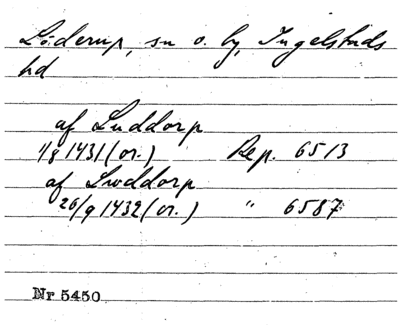 Löderup, sn o. by, Ingelstads
hd
af Luddorp
1/8 1431 (or.) Rep. 6513
af Lwddorp
26/9 1432 (or.) " 6587
Nr 5450